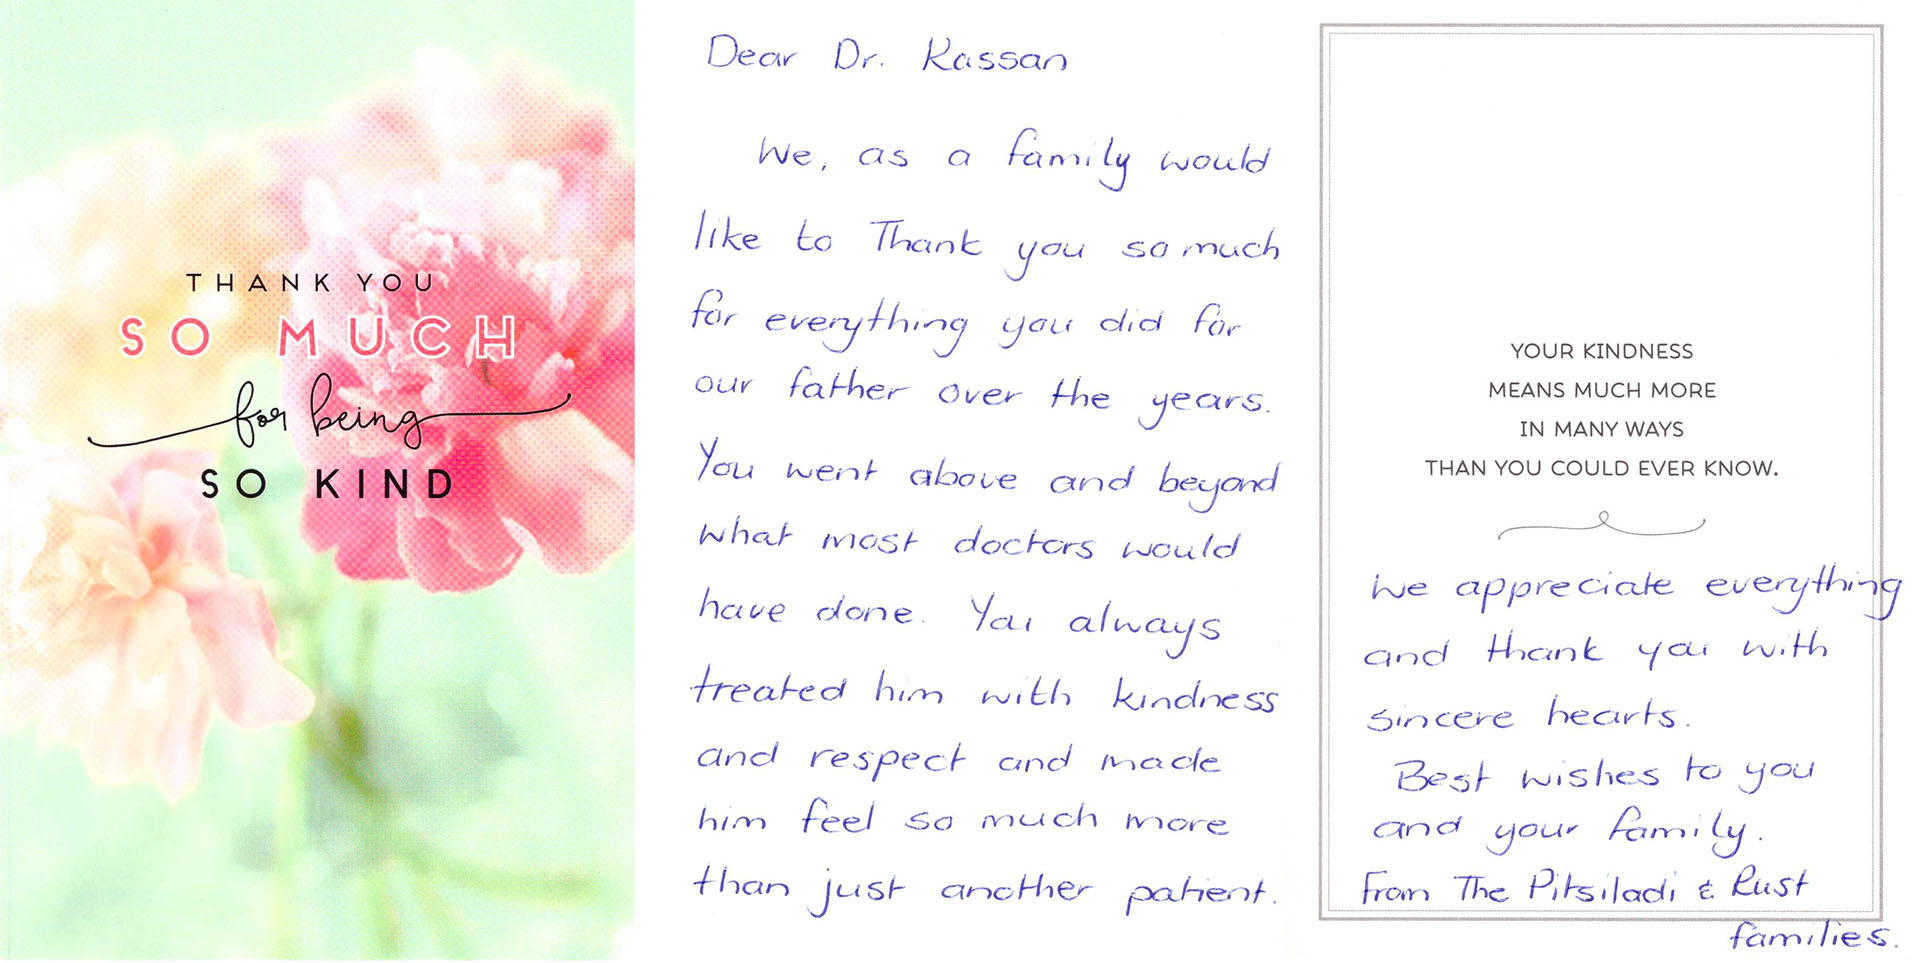 THANK YOU
SO MUCH
for being
SO KIND
Dear Dr. Kassan
We, as a family would
like to Thank you so much
for everything you did for
our father over the years.
You went above and beyond
what most doctors would
have done. You always
treated him with kindness
and respect and made
him feel so much more
than just another patient.
YOUR KINDNESS
MEANS MUCH MORE
IN MANY WAYS
THAN YOU COULD EVER KNOW.
We appreciate everything
and thank you with
sincere hearts.
Best wishes to you
and your family.
From The Pitsiladi & Rust
families.